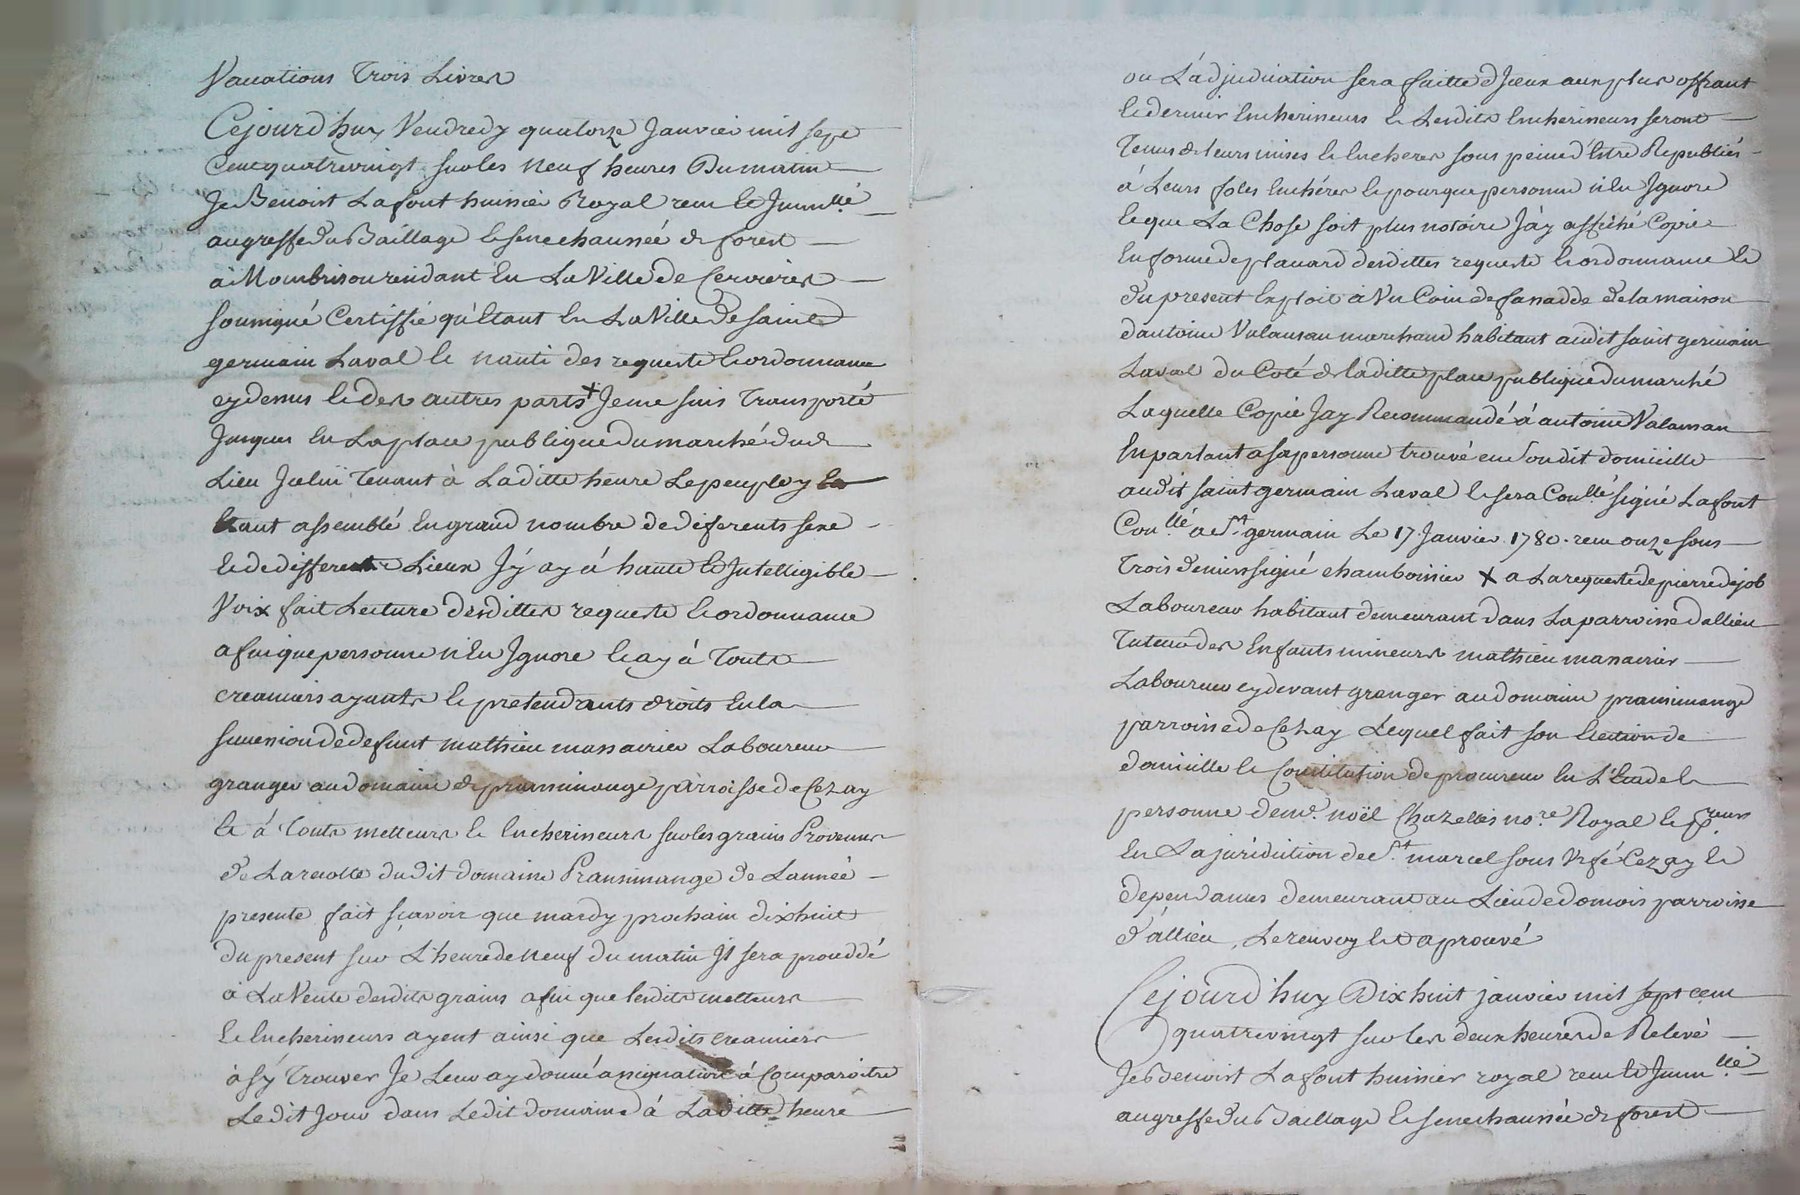 Vacations Trois Livres
Cejourd huy Vendredy quatorze Janvier mil sept
Cent quatrevingt sur les neuf heures Du matin
Je Benoist Lafont huissier Royal receu et Immllé
au greffe du Baillage et senechaussée de forest
à Montbrison rendant En La Ville de Cervieres
soussigné Certiffie qu'Etant En La Ville de saint
germain Laval et nanti des requeste et ordonnance
cy dessus et des autres parts + Je me suis Transporté
Jusques En La place publique du marché dudt
Lieu Icelui Tenant à Laditte heure Le peuple y
Etant assemblé En grand nombre de diferents sexe
et de differents Lieux J'y ay à haute et Intelligible
Voix fait Lecture desdittes requeste et ordonnance
afin que personne n'En Ignore et ay à Touts
creanciers ayants et pretendants droits En la
succession de defunt mathieu massacrier Laboureur
granger au domaine de pransimange parroisse de Cezay
et à Touts metteurs et Encherisseurs sur les grains Provenus
de La recolte dudit domaine Pransimange de L'année
presente fait sçavoir que mardy prochain dixhuit
du present sur L'heure de neuf du matin Il sera proceddé
à La Vente desdits grains afin que lesdits metteurs
et Encherisseurs ayent ainsi que Lesdits creanciers
à s'y Trouver Je Leur ay donné assignation à Comparoitre
Le dit Jour dans Ledit domaine à Laditte heure
ou L'adjudication sera faitte d'Iceux aux plus offrant
et dernier Encherisseurs et Lesdits Encherisseurs seront
Tenus de leurs mises et Encheres sous peine d'Estre Republiés
à Leurs foles Enchéres et pour que personne n'En Ignore
et que La Chose soit plus notoire J'ay affiché Copie
En forme de placard desdittes requeste et ordonnance et
du present Exploit à Un Coin de fassadde de la maison
d'antoine Valansan marchand habitant audit saint germain
Laval du Coté de laditte place publique du marché
Laquelle Copie Jay Recommandé à antoine Valansan
En parlant a sa personne trouvé en son dit domicille
audit saint germain Laval et sera Contllé signé Lafont
Conllé a St germain Le 17 Janvier 1780. receu onze sous
Trois deniers signé chamboissier + a La requeste de pierre dejob
Laboureur habitant demeurant dans La parroisse d'allieu
Tuteur des Enfants mineurs mathieu massacrier
Laboureur cy devant granger au domaine pransimange
parroisse de Cezay Lequel fait son Election de
domicille et Constitution de procureur En L'Etude et
personne de me. noël Chazelles nore. Royal et preur.
En La juridiction de St marcel sous Urfé Cezay et
dependances demeurant au Lieu de domois parroisse
d'allieu, Le renvoy Est aprouvé
Cejourd huy Dixhuit janvier mil sept cent
quatrevingt sur les deux heures de Relevé
Je Benoist Lafont huissier royal receu et Immllé
au greffe du Baillage et senechaussée de forest